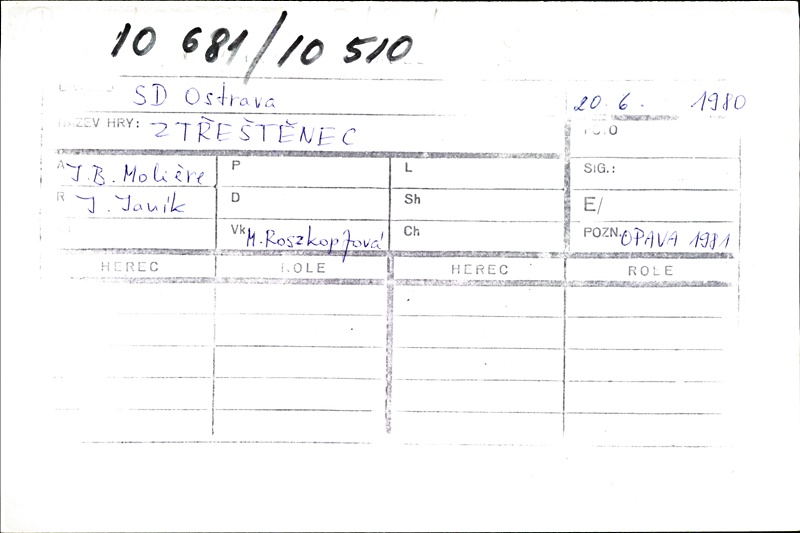 10 681/10 510
SD Ostrava 20. 6. 1980
NÁZEV HRY: ZTŘEŠTĚNEC FOTO
A J. B. Molière P L SIG.:
R J. Janík D Sh E/
Vk M. Roszkopfová Ch POZN. OPAVA 1981
HEREC ROLE HEREC ROLE